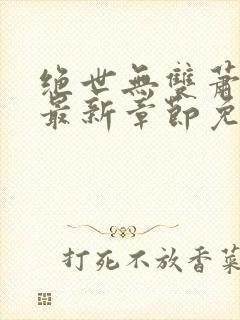 绝世無雙蕭
最新章節免
打死不放香菜